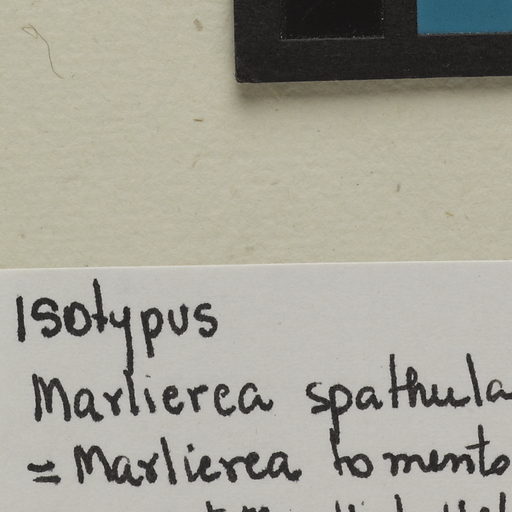 Isotypus
Marlierea spathula
= Marlierea tomento